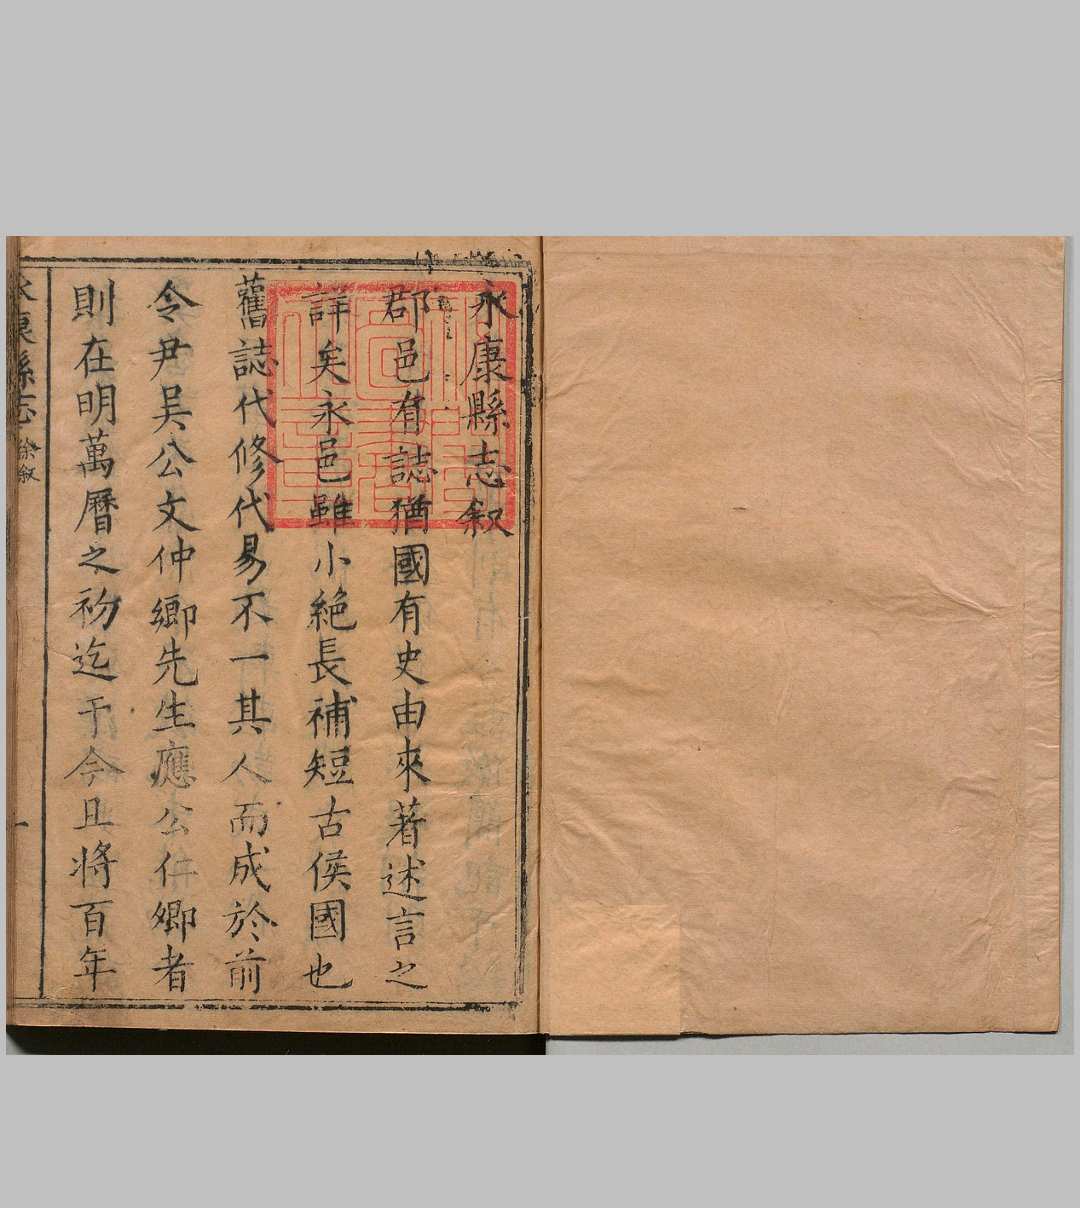 永康縣志叙
郡邑有誌猶國有史由來著述言之
詳矣永邑雖小絶長補短古侯國也
舊誌代修代易不一其人而成於前
令尹吳公文仲鄉先生應公仁卿者
則在明萬曆之初迄于今且將百年
永康縣志 徐叙 一